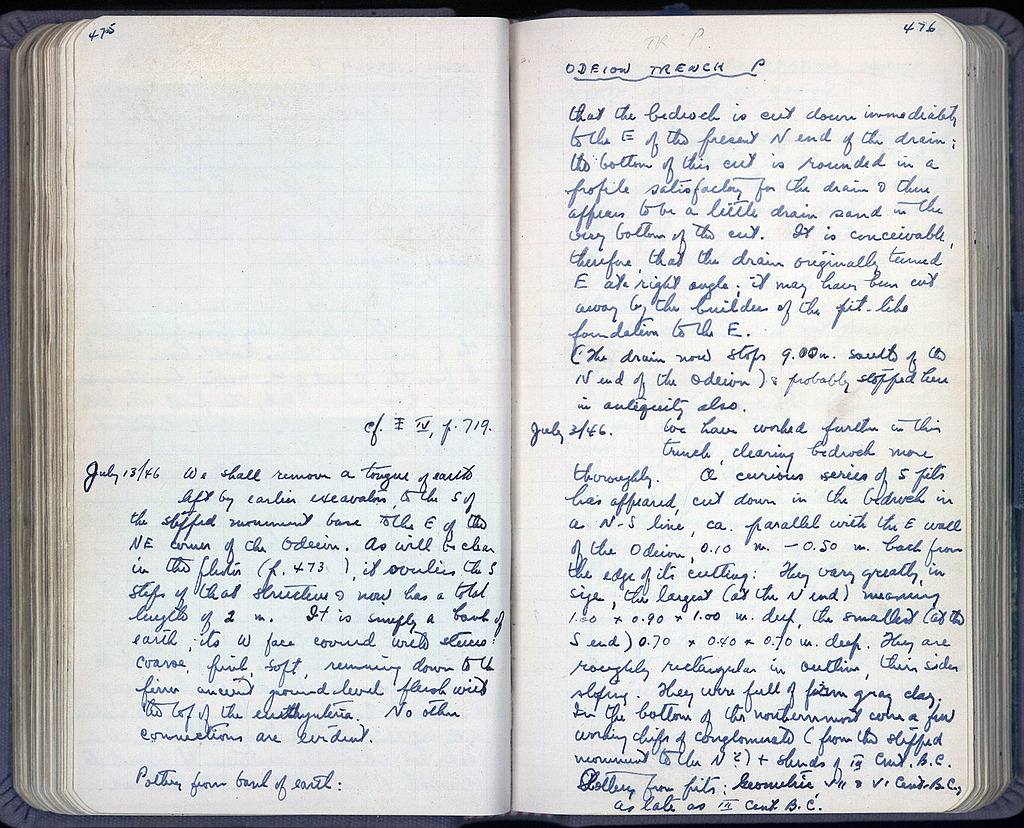 475
cf. IV, p. 719.
July 13/46 We shall remove a tongue of earth
left by earlier excavators, to the S of
the stepped monument base to the E of the
NE corner of the Odeion. As will be clear
in the photos (p. 473 ), it overlies the S
steps of that structure & now has a total
length of 2 m. It is simply a bank of
earth, its W face covered with stucco:
coarse, pink, soft, running down to the
firm ancient ground level flush with
the top of the euthynteria. No other
connections are evident.
Pottery from bank of earth:
476
TR P.
ODEION TRENCH P
that the bedrock is cut down immediately
to the E of the present N end of the drain;
the bottom of this cut is rounded in a
profile satisfactory for the drain & there
appears to be a little drain sand in the
very bottom of the cut. It is conceivable,
therefore, that the drain originally turned
E at a right angle; it may have been cut
away by the builders of the pit-like
foundation to the E.
(The drain now stops 9.00 m. south of the
N end of the Odeion) & probably stopped here
in antiquity also.
July 3/46. We have worked further in this
trench, clearing bedrock more
thoroughly. A curious series of 5 pits
has appeared, cut down in the bedrock in
a N-S line, ca. parallel with the E wall
of the Odeion, 0.10 m. – 0.50 m. back from
the edge of its cutting. They vary greatly in
size, the largest (at the N end) measuring
1.20 x 0.90 x 1.00 m. deep, the smallest (at the
S end) 0.70 x 0.40 x 0.70 m. deep. They are
roughly rectangular in outline, their sides
sloping. They were full of firm gray clay.
In the bottom of the northernmost were a few
working chips of conglomerate (from the stepped
monument to the N?) + sherds of IV Cent. B.C.
Pottery from pits: Geometric, VII & VI Cent. B.C.,
as late as III Cent B.C.